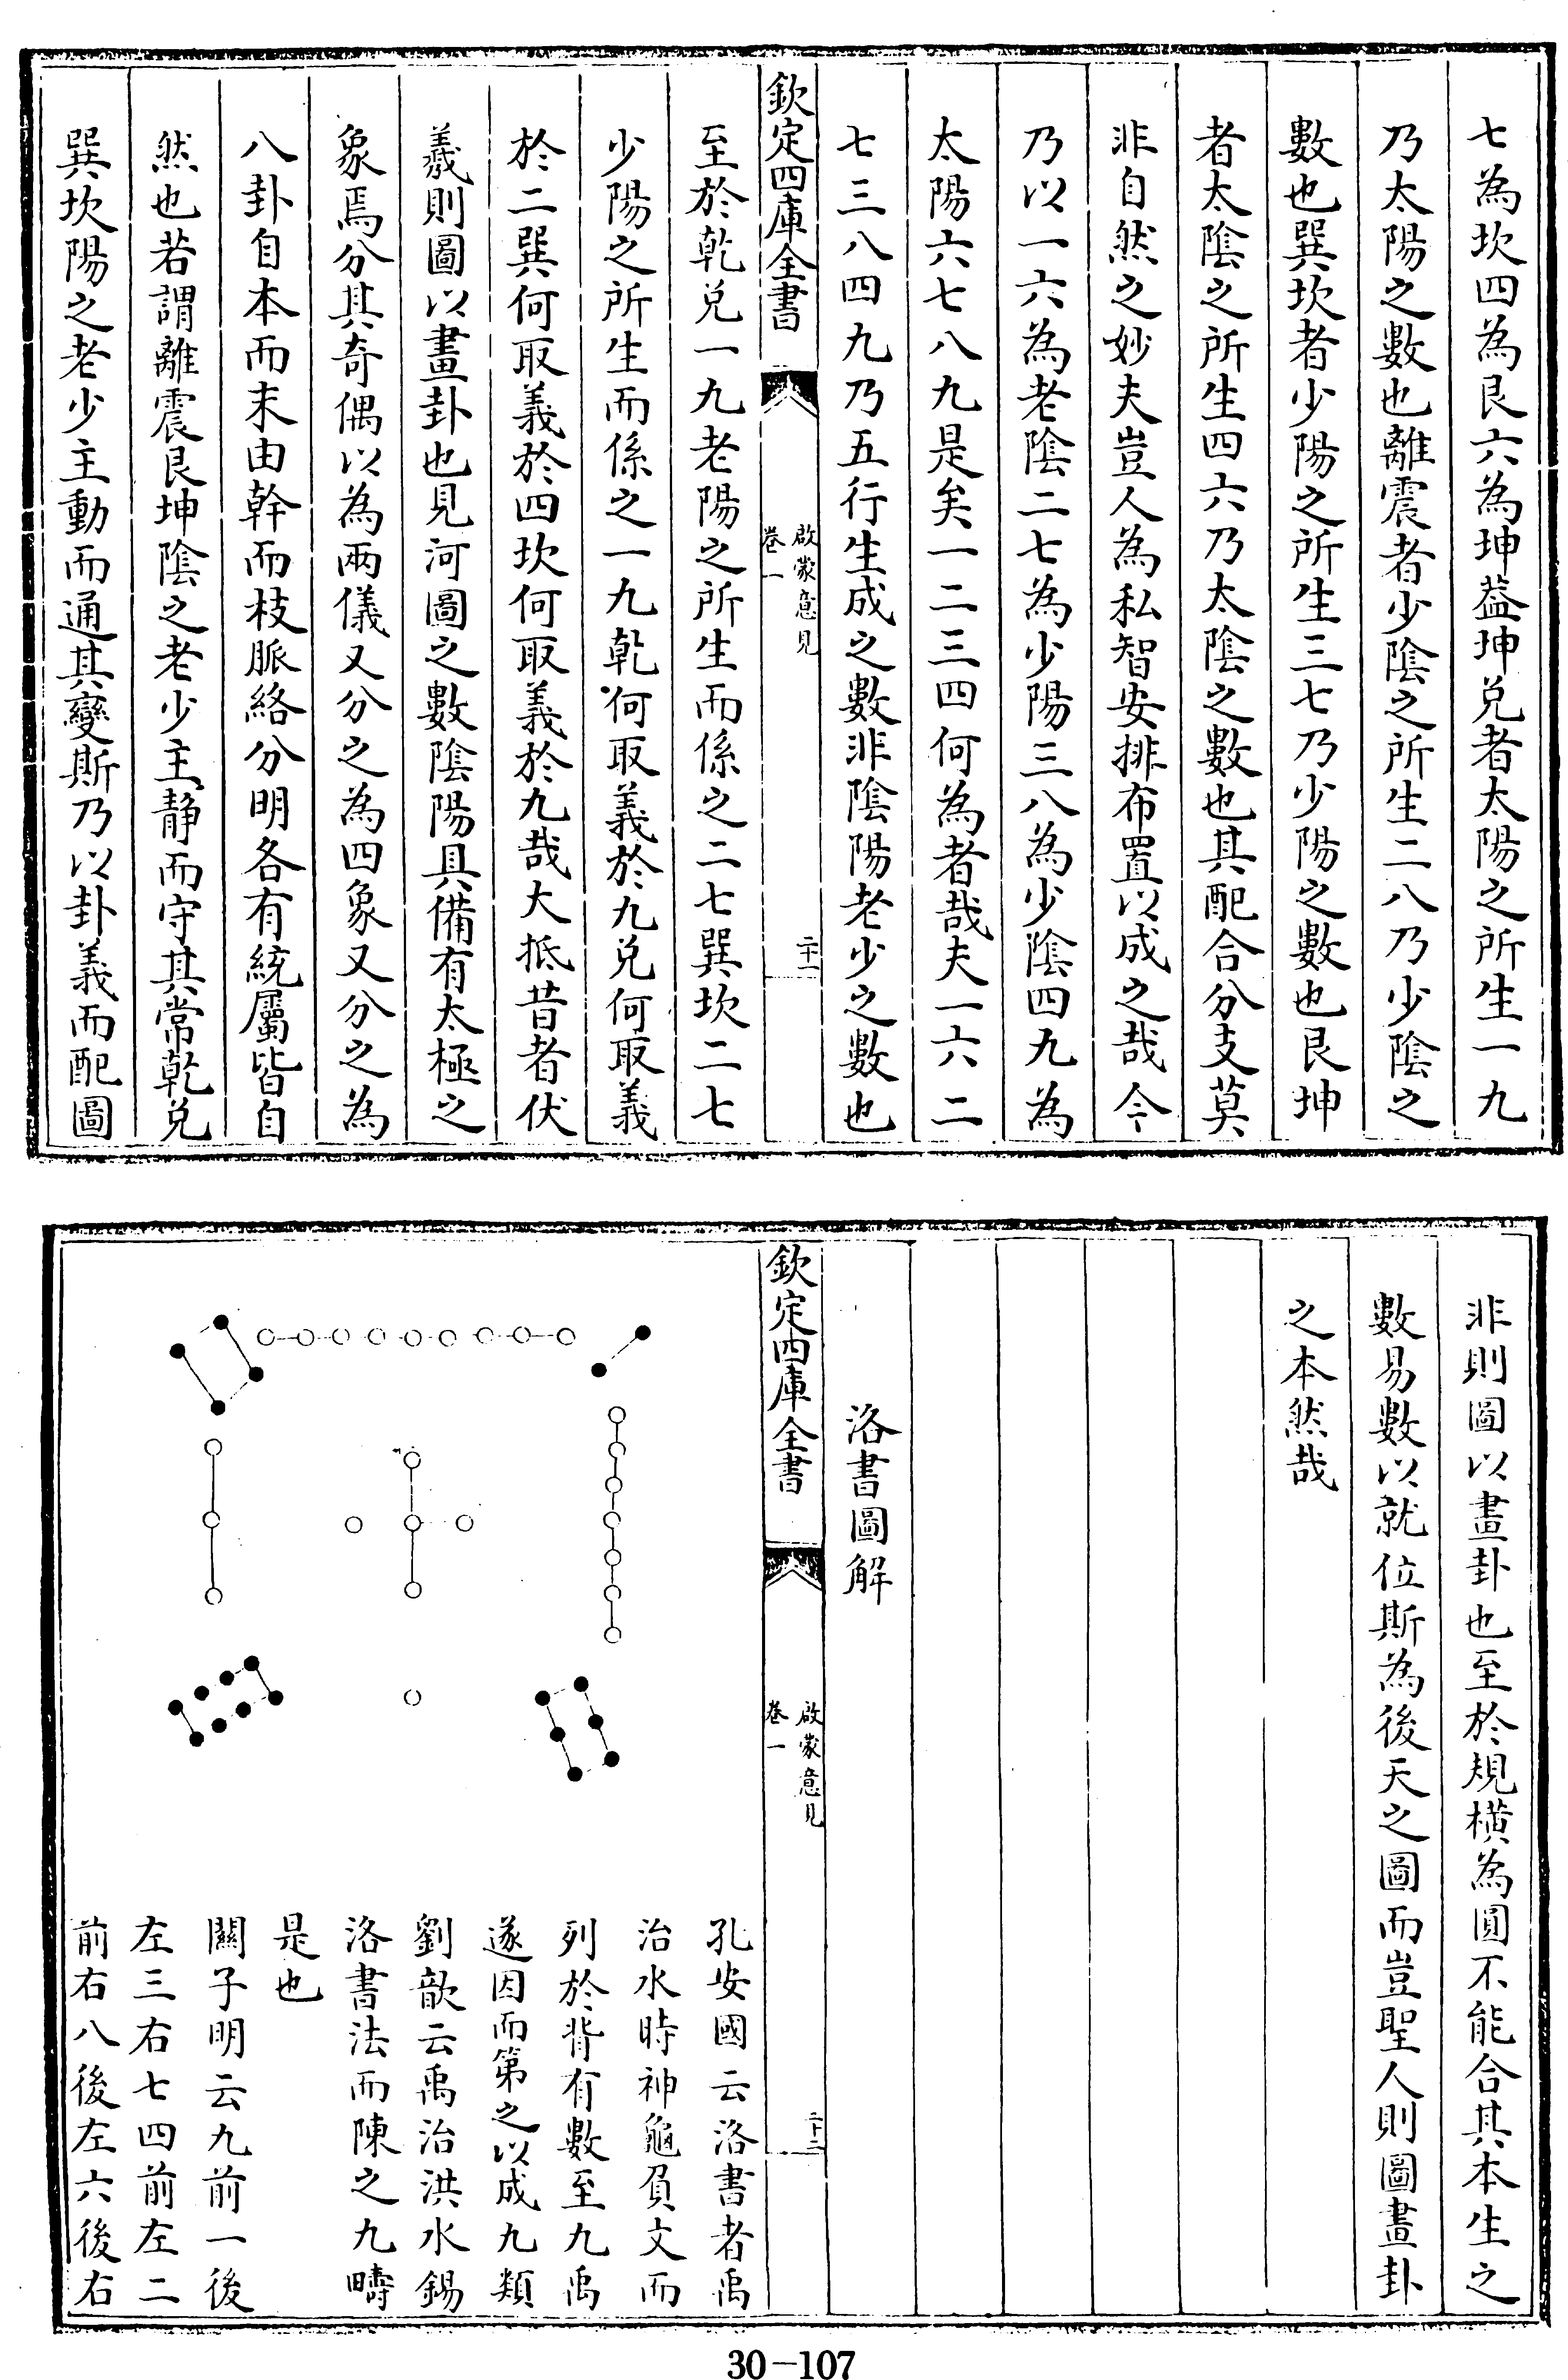 七為坎四為艮六為坤蓋坤兌者太陽之所生一九
乃太陽之數也離震者少陰之所生二八乃少陰之
數也巽坎者少陽之所生三七乃少陽之數也艮坤
者太陰之所生四六乃太陰之數也其配合分支莫
非自然之妙夫豈人為私智安排布置以成之哉今
乃以一六為老陰二七為少陽三八為少陰四九為
太陽六七八九是矣一二三四何為者哉夫一六二
七三八四九乃五行生成之數非陰陽老少之數也
欽定四庫全書
啟蒙意見
卷一
二十一
至於乾兌一九老陽之所生而係之二七巽坎二七
少陽之所生而係之一九乾何取義於九兌何取義
於二巽何取義於四坎何取義於九哉大抵昔者伏
羲則圖以畫卦也見河圖之數陰陽具備有太極之
象焉分其奇偶以為兩儀又分之為四象又分之為
八卦自本而末由幹而枝脈絡分明各有統屬皆自
然也若謂離震艮坤陰之老少主靜而守其常乾兌
巽坎陽之老少主動而通其變斯乃以卦義而配圖
非則圖以畫卦也至於規橫為圓不能合其本生之
數易數以就位斯為後天之圖而豈聖人則圖畫卦
之本然哉
洛書圖解
欽定四庫全書
啟蒙意見
卷一
二十二
孔安國云洛書者禹
治水時神龜負文而
列於背有數至九禹
遂因而第之以成九類
劉歆云禹治洪水錫
洛書法而陳之九疇
是也
關子明云九前一後
左三右七四前左二
前右八後左六後右
30-107